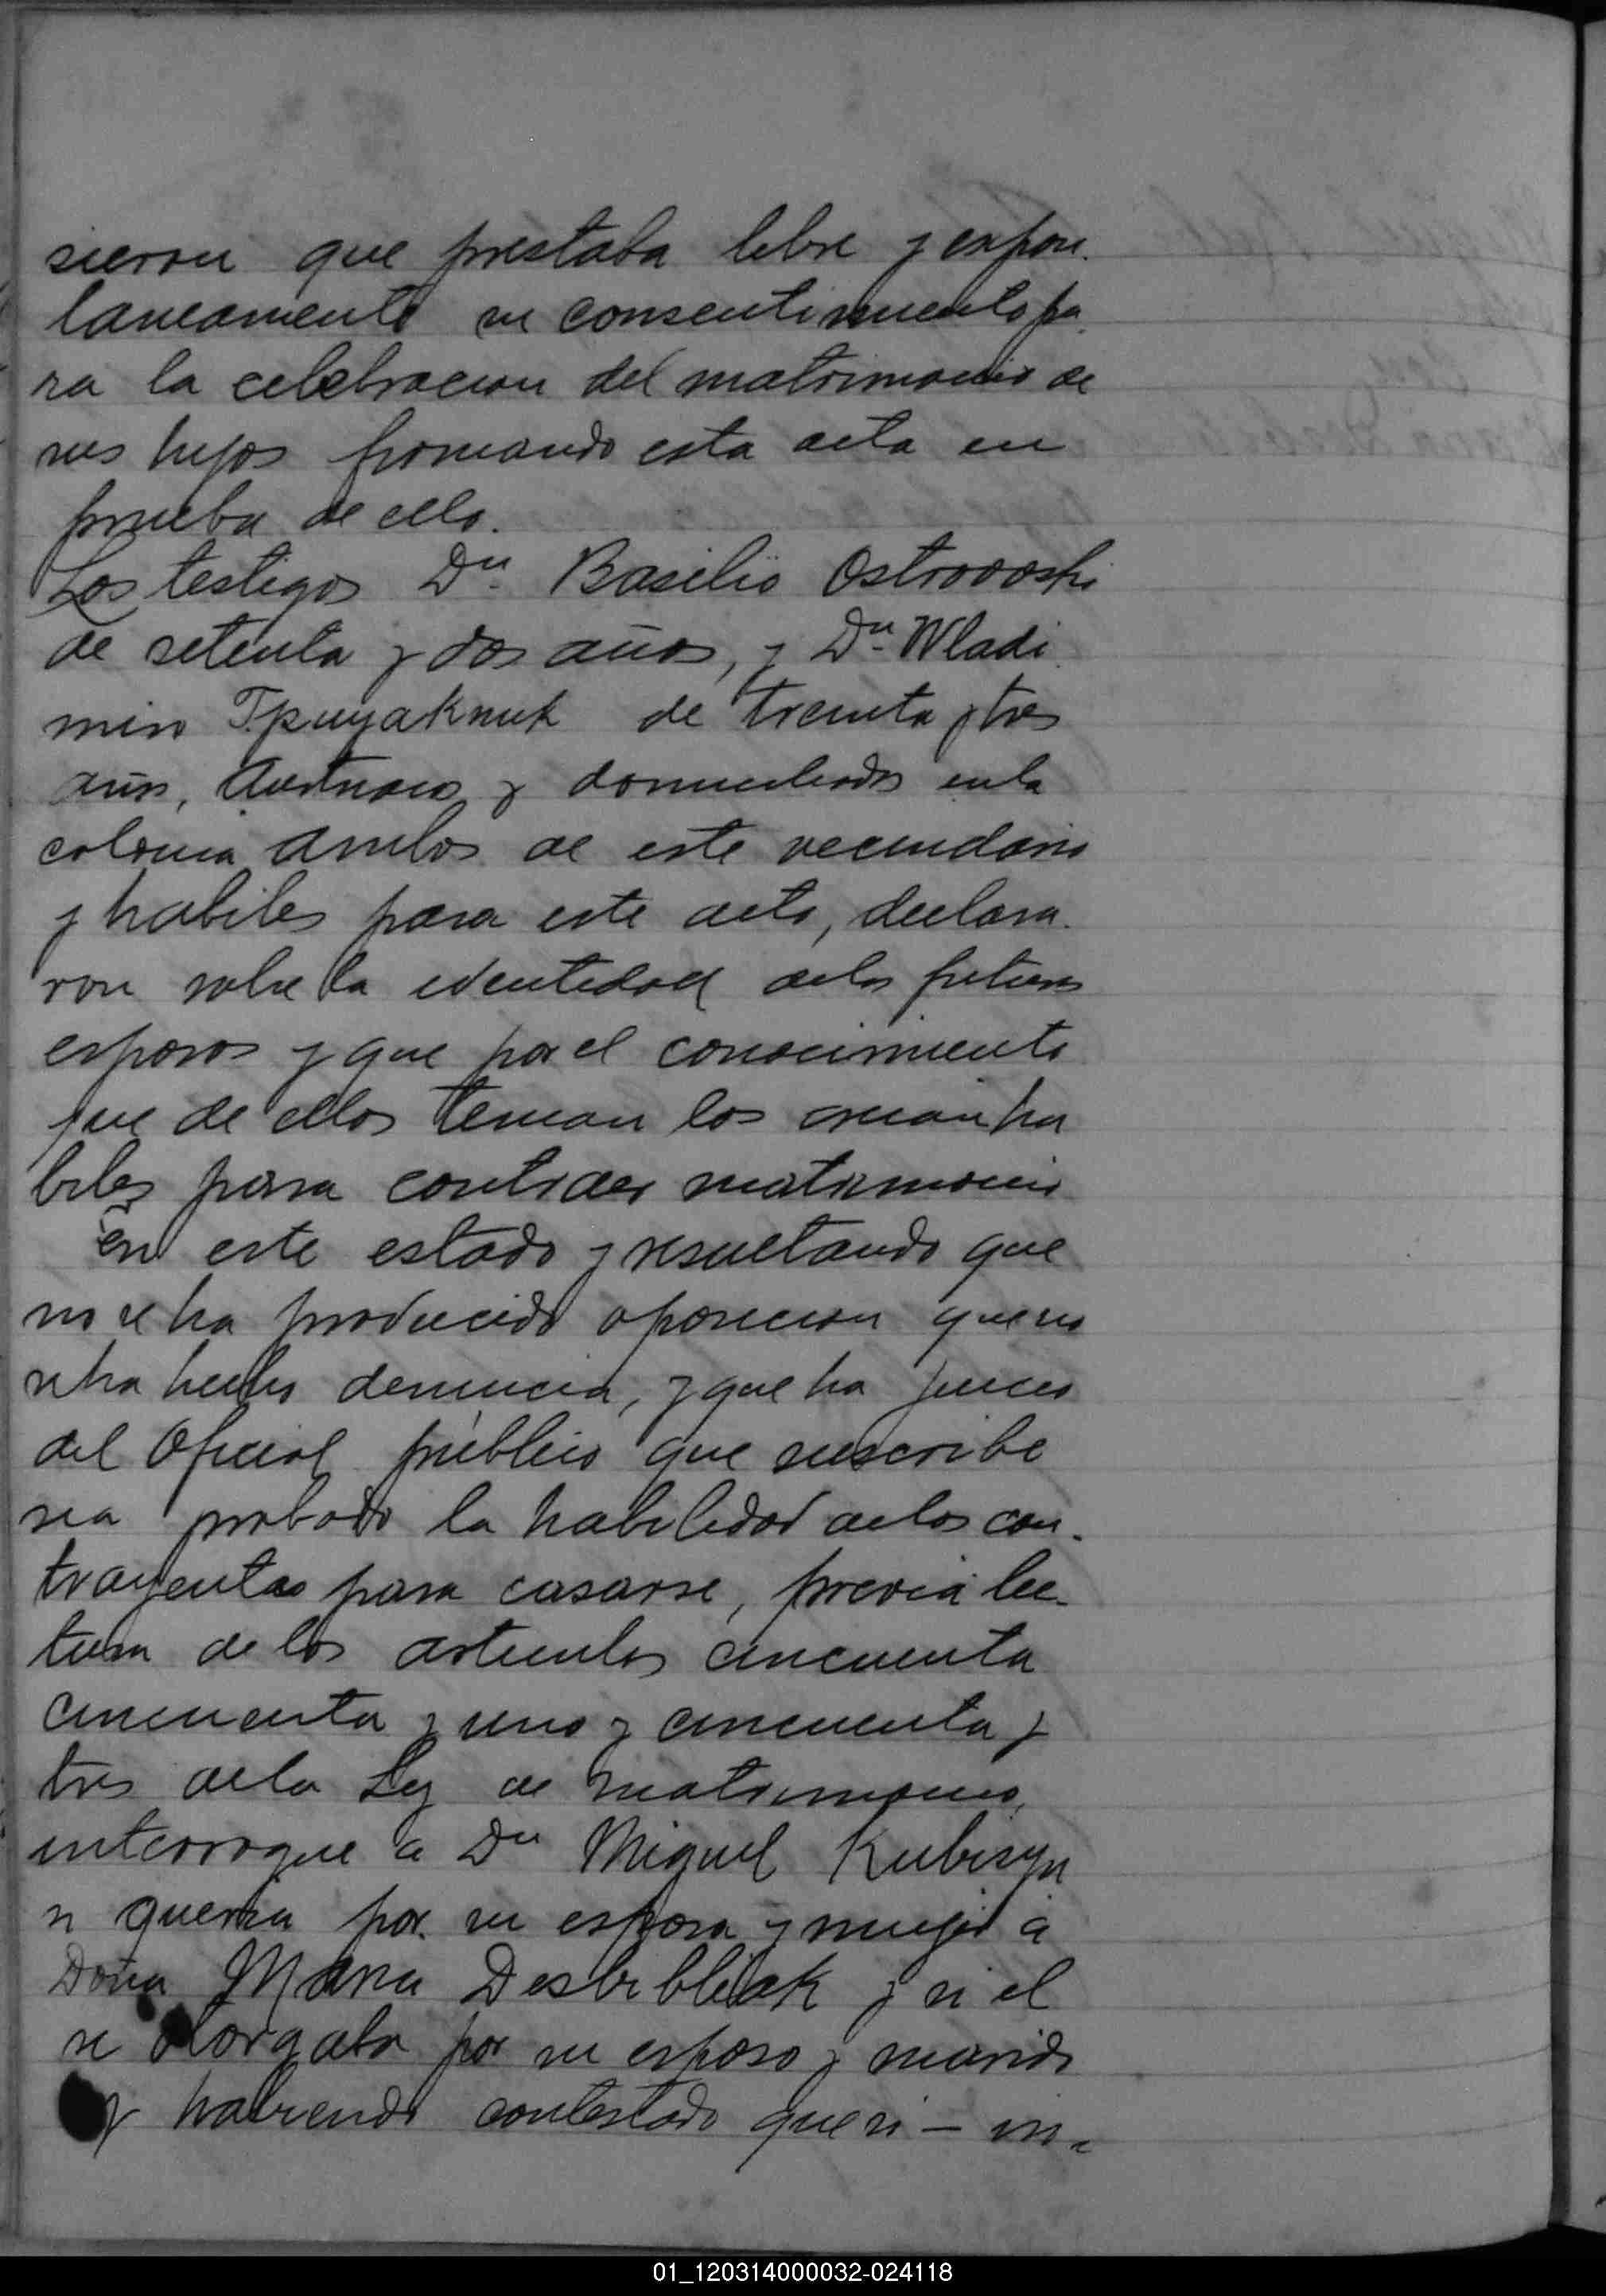 sieron que prestaba libre y expon.
taneamente su consentimiento pa
ra la celebracion del matrimonio de
sus hijos firmando esta acta en
prueba de ello.
Los testigos Dn. Basilio Ostrovoski
de setenta y dos años, y Dn. Wladi
miro de treinta y tres
años, Austriacos y domiciliados en la
colonia ambos de este vecindario
y habiles para este acto, declara.
ron sobre la identidad de los futuros
esposos y que por el conocimiento
que de ellos tenian los creian ha
biles para contraer matrimonio
en este estado y resultando que
no se ha producido oposicion que no
se ha hecho denuncia, y que ha juicio
del Oficial público que suscribe
sea probado la habilidad de los con-
trayentes para casarse, previa lec-
tura de los articulos cincuenta
cincuenta y uno y cincuenta y
tres de la Ley de matrimonio,
interrogue a Dn Miguel Kubisyn
si queria por su esposa y muger á
Doña Maria Desbibleak y si el
se otorgaba por su esposo y marido
y habiendo contestado que si – in-
01_120314000032-024118